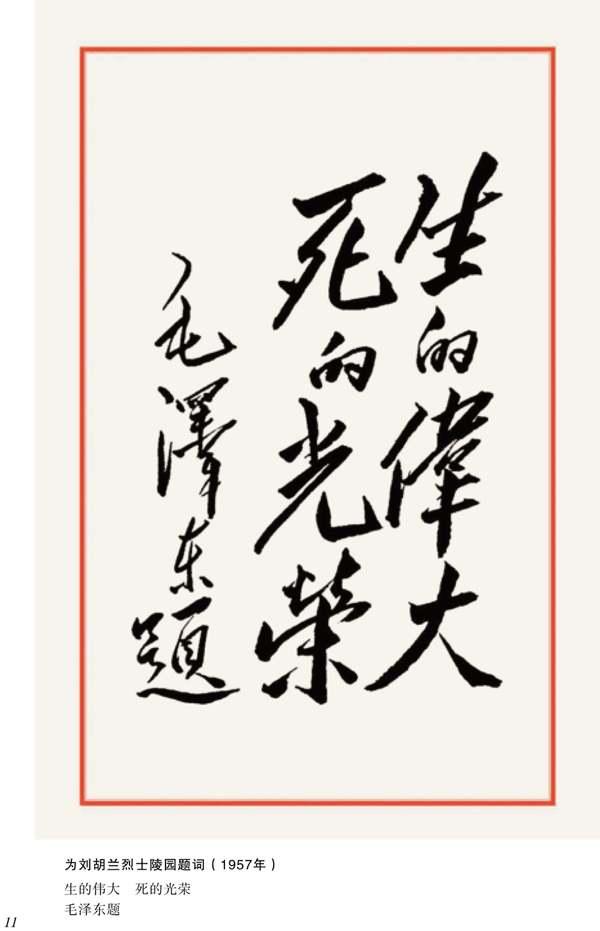 生的偉大
死的光榮
毛澤东題
为刘胡兰烈士陵园题词（1957年）
生的伟大　死的光荣
毛泽东题
11